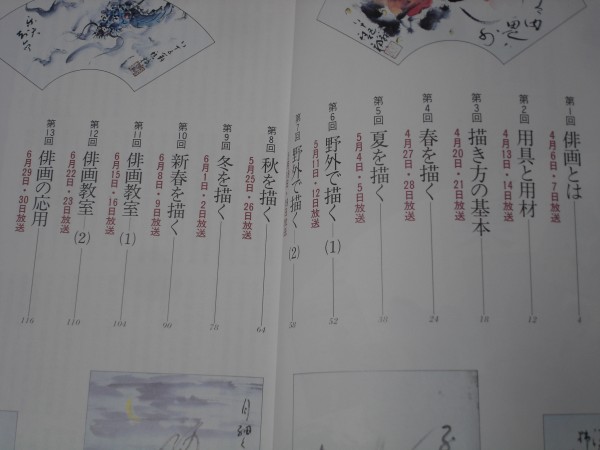 第1回 俳画とは 4
4月6日・7日放送
第2回 用具と用材 12
4月13日・14日放送
第3回 描き方の基本 18
4月20日・21日放送
第4回 春を描く 24
4月27日・28日放送
第5回 夏を描く
5月4日・5日放送
第6回 野外で描く(1) 52
5月11日・12日放送
野外で描く(2) 58
第8回 秋を描く 64
5月25日・26日放送
第9回 冬を描く 78
6月1日・2日放送
第10回 新春を描く 90
6月8日・9日放送
第11回 俳画教室(1) 104
6月15日・16日放送
第12回 俳画教室(2) 110
6月22日・23日放送
第13回 俳画の応用 116
6月29日・30日放送